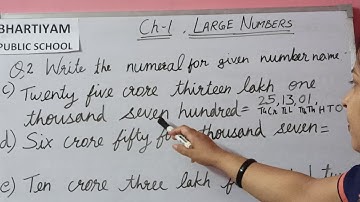 BHARTIYAM
PUBLIC SCHOOL
Ch-1 . LARGE NUMBERS
Q.2 Write the numeral for given number name
c) Twenty five crore thirteen lakh one
thousand seven hundred = 25,13,01,
TC C TL L TTh Th H T O
d) Six crore fifty thousand seven =
e) Ten crore three lakh